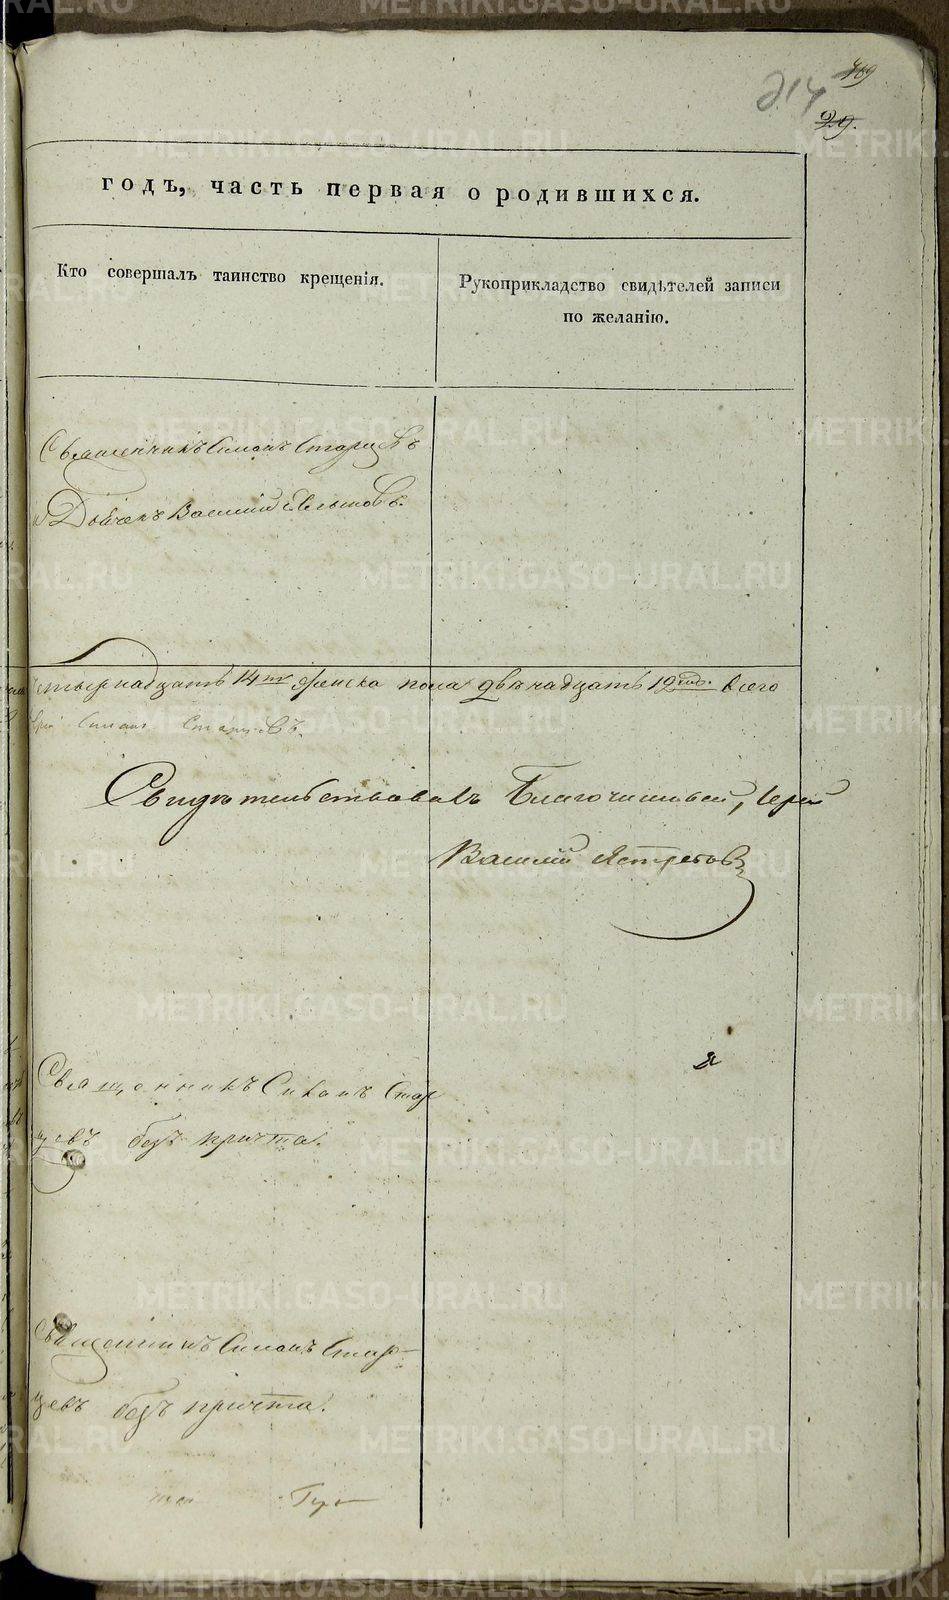 214
29.
годъ, часть первая о родившихся.
Кто совершалъ таинство крещенія.
Рукоприкладство свидѣтелей записи
по желанію.
Священникъ Симонъ Старцевъ
и Дьячекъ Василий
четырнадцать 14ть женска пола двѣнадцать 12ть всего
Iерей Симонъ Старцевъ.
Свидѣтельствовалъ Благочинный, Iерей
Василий Ястребовъ
Священникъ Симонъ Стар
цевъ безъ причта.
Священникъ Симонъ Стар-
цевъ безъ причта.
METRIKI.GASO-URAL.RU